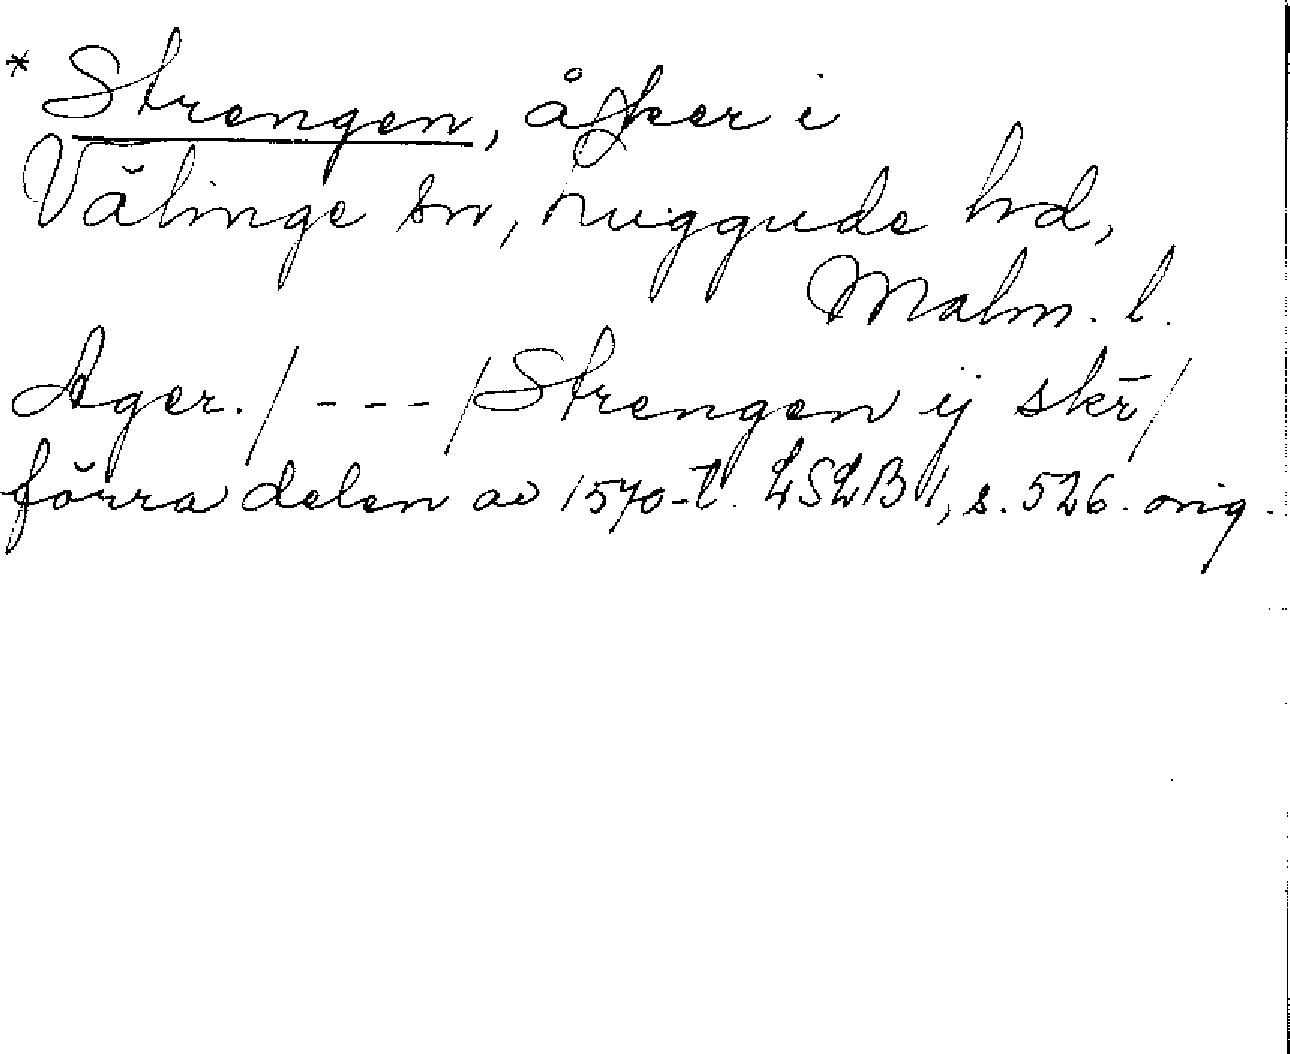 * Strengen, åker i
Välinge sn, Luggude hd,
Malm. l.
Ager. / - - - / Strengen ij skr̄ /
förra delen av 1570-t. LSLB 1, s. 526. orig.